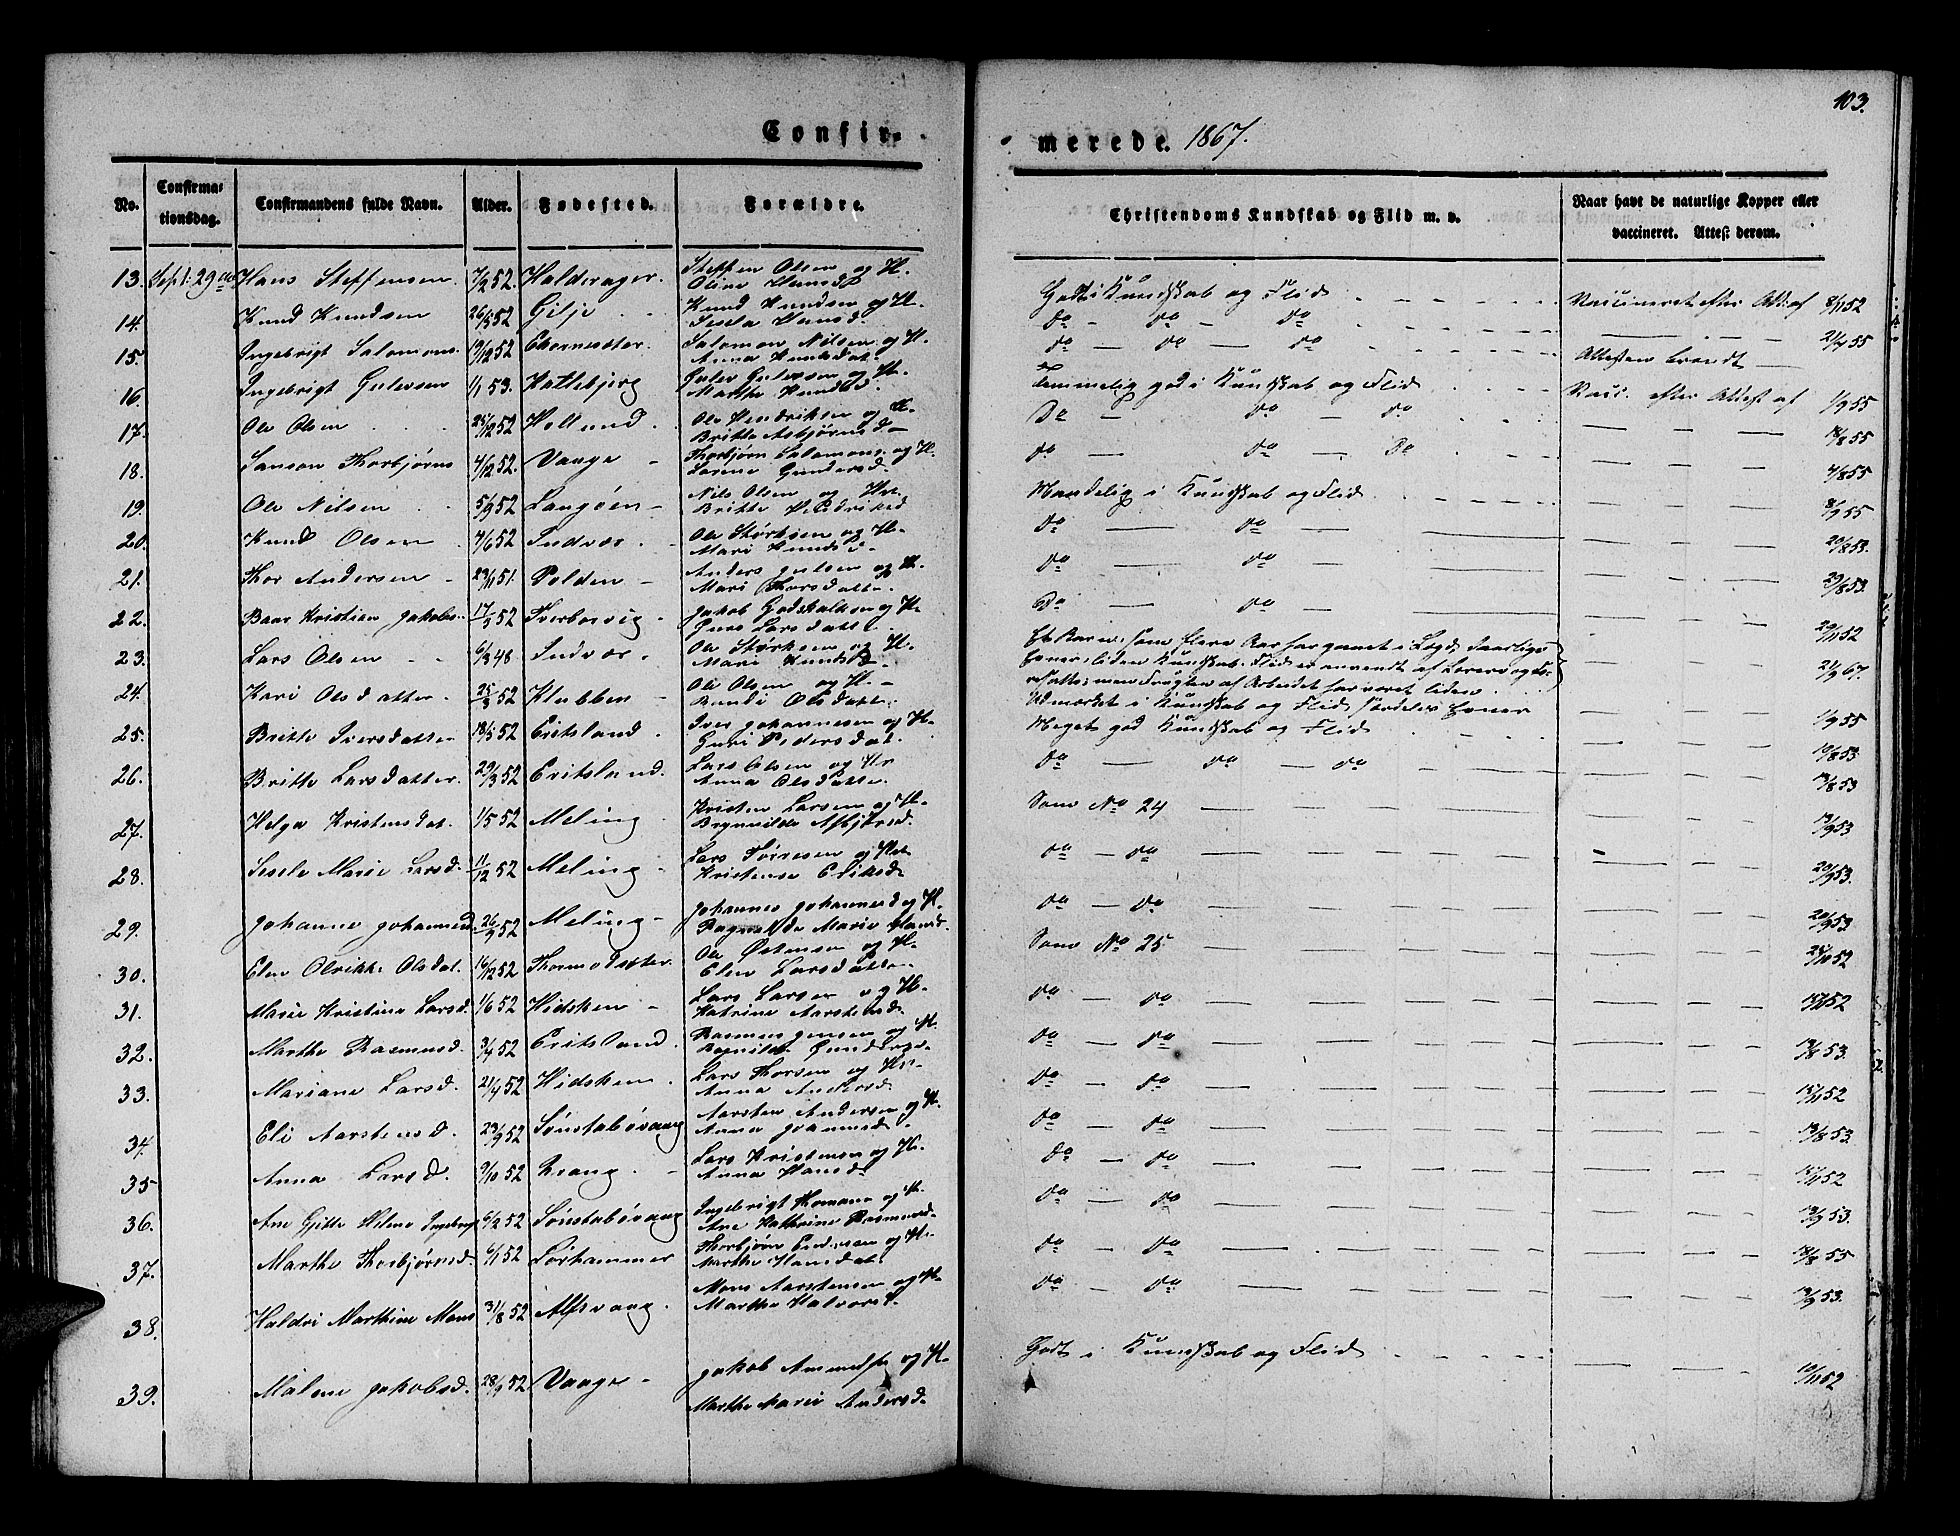 103.
Confir-
merede. 1867.
No.
Confirma-
tionsdag.
Confirmandens fulde Navn.
Alder.
Fødested.
Forældre.
Christendoms Kundskab og Flid m. v.
Naar havt de naturlige Kopper eller
vaccineret. Attest derom.
13. Sept: 29de Hans Steffensen 7/2 52. Halderager. Steffen Olsen og H. Oline Hansd. Godt i Kundskab og Flid Vaccineret efter Att: af 8/11 52
14. Knud Knudsen 26/3 52 Gilje Knud Knudsen og H. Sesela Hansd. do do do 21/7 55
15. Ingebrigt Salomons. 13/12 52 Salomon Nilsen og H. Anna Knudsdat. do do do Attesten brændt
16. Ingebrigt Gulevsen 1/1 53. Hattebjerg Gulev Gulevsen og H. Marthe Knudsd. Temmelig god i Kundskab og Flid Vacc. efter Attest af 1/9 55
17. Ole Olsen 25/12 52 Hollund. Ole Hendriksen og H. Britte Asbjørnsd. Do do do 18/8 55
18. Samson Thorbjørns 4/12 52. Vaage Thorbjørn Salomons. og H. Lorene Gundersd. do do Do 4/8 55
19. Ole Nilsen 5/9 52 Langøen Nils Olsen og H. Britte Maadelig i Kundskab og Flid 8/9 55
20. Knud Olsen 4/6 52 Indvær Ole Størksen og H. Mari Knudsd. do do 20/8 53.
21. Thor Andersen 23/11 51. Polden Anders og H. Mari Thorsdatter do do 29/8 53.
22. Baar Kristian Jakobs. 17/5 52 Tverborvig Jakob Godskalksen og H. Guro Larsdatt. Do do 29/11 52
23. Lars Olsen 6/3 48 Indvær Ole Størksen og H. Mari Knudsd. Et Barn, som flere Aar har gaaet i Lægd, daarlige
Evner, liden Kundskab. Flid er anvendt af Lærer og
men Frugten af Arbeidet har været liden 21/9 67.
24. Kari Olsdatter 25/3 52 Klubben Ole Olsen og H. Randi Olsdatt. Udmærket i Kundskab og Flid, særdeles Evner 1/9 55
25. Britte Iversdatter 18/5 52 Eritsland. Iver Johannesen og H. Guri Pedersdat. Meget god Kundskab og Flid 10/8 53
26. Britte Larsdatter 29/3 52 Eritsland. Lars Olsen og H. Anna Olsdatter do do do 13/8 53
27. Helga Kristensdat. 1/5 52 Meling Kristen Larsen og H. Brynnilde Asbjørnsd. Som No 24 13/9 53
28. Sesele Marie Larsd. 11/12 52 Meling Lars Tørresen og H. Kristense Eriksd. do do 20/9 53.
29. Johanne Johannesd. 26/9 52 Meling Johannes Johannesd og H. Ragnilde Marie Hansd. do do 20/9 53
30. Elen Olrikke Olsdat. 16/12 52 Thormodsæter Ole Østensen og H. Elen Larsdatter Som No 25 25/10 52
31. Marie Kristine Larsd. 1/6 52 Hidsken Lars Larsen og H. Katrine Aarstensd. do do 15/11 52
32. Marthe Rasmusd. 3/4 52 Eritsland. Rasmus Jensen og H. do do 13/8 53.
33. Mariane Larsd. 21/4 52 Hidsken. Lars Thorsen og H. Anna Andersd. do do 15/11 52
34. Eli Aarstensd. 23/9 52 Sønstabøvaag Aarsten Andersen og H. Anna Joannesd. do do 13/8 53.
35 Anna Larsd. 9/10 52 Lars Kristensen og H. Anna Hansd. do do 15/11 52
36. Ane Gjitte Helene Ingebrigt 6/2 52 Sønstabøvaag Ingebrigt Thomans. og H. Ane Kathrine Rasmusd. do do 13/9 53.
37. Marthe Thorbjørnsd. 6/1 52 Lørhammer Thorbjørn Endresen og H. Marthe Hansdat. do do 18/8 55
38. Haldri Marthine Mons 31/8 52 Alfsvaag. Mons Aarstensen og H. Marthe Halvorsd. do do 13/9 53.
39. Malene Jakobsd. 28/9 52 Vaage Jakob og H. Marthe Marie Andersd. Godt i Kundskab og Flid 10/11 52